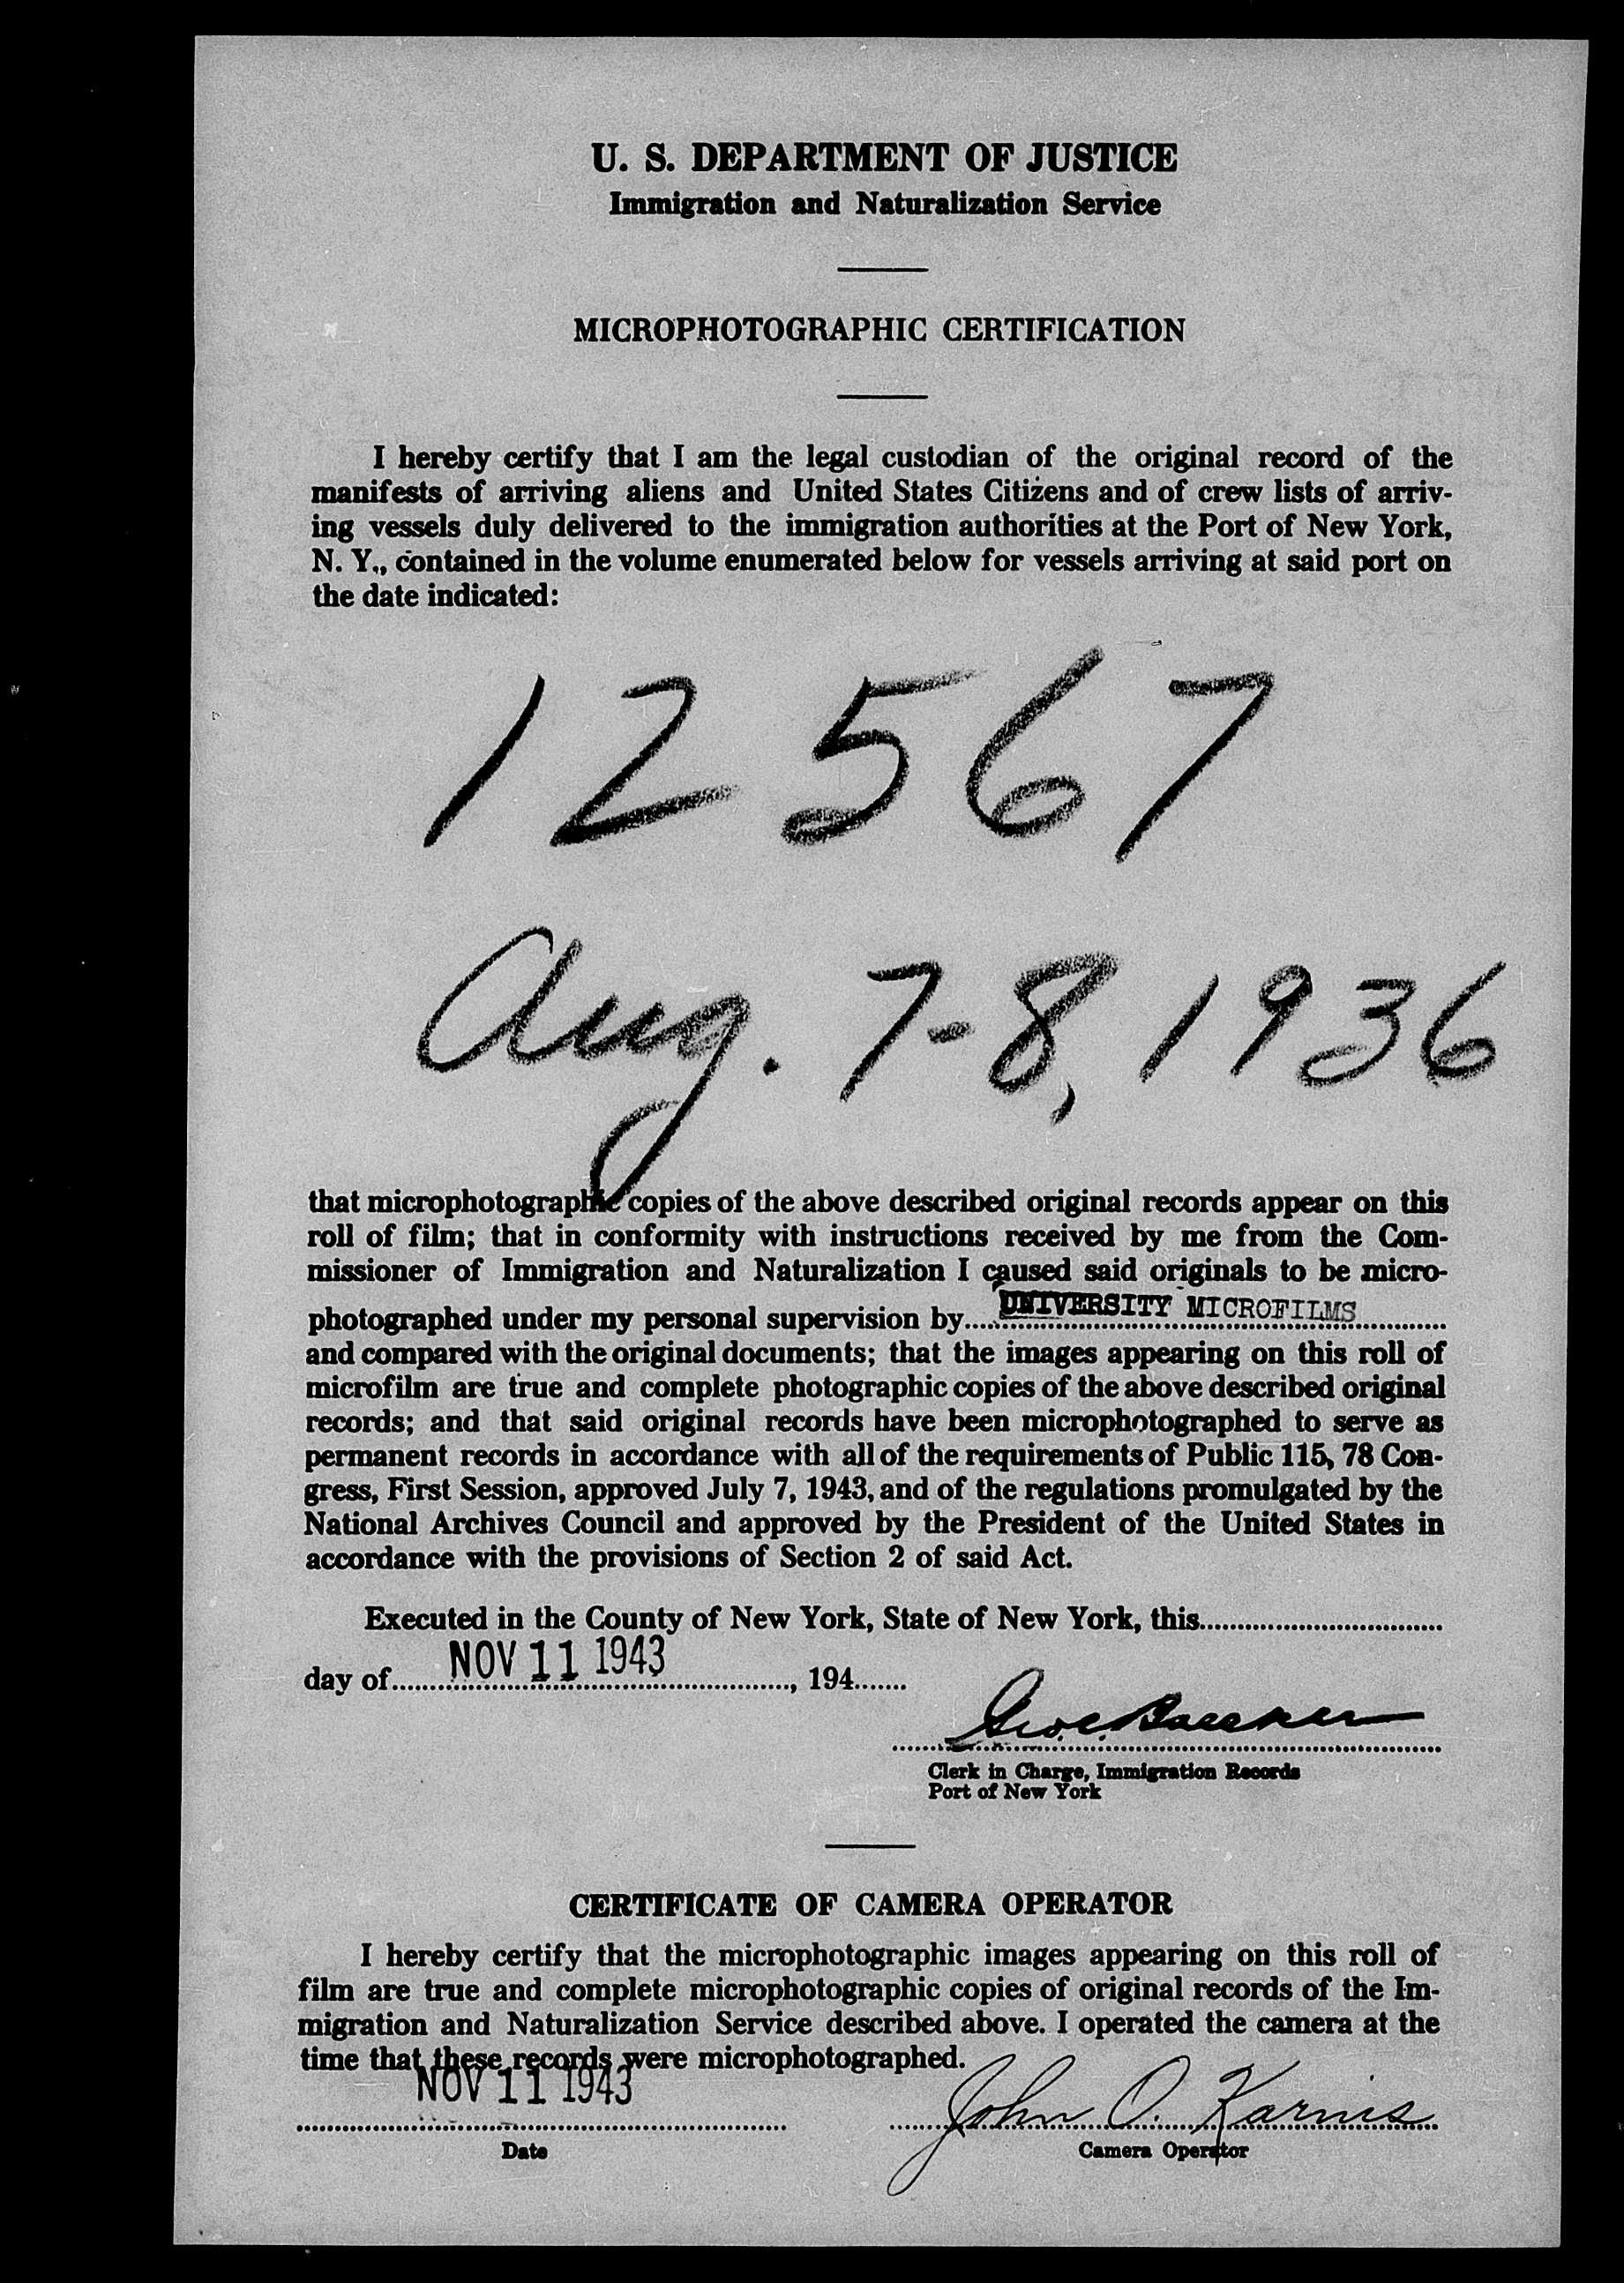 U. S. DEPARTMENT OF JUSTICE
Immigration and Naturalization Service
MICROPHOTOGRAPHIC CERTIFICATION
I hereby certify that I am the legal custodian of the original record of the
manifests of arriving aliens and United States Citizens and of crew lists of arriv-
ing vessels duly delivered to the immigration authorities at the Port of New York,
N. Y., contained in the volume enumerated below for vessels arriving at said port on
the date indicated:
12567
Aug. 7-8, 1936
that microphotographic copies of the above described original records appear on this
roll of film; that in conformity with instructions received by me from the Com-
missioner of Immigration and Naturalization I caused said originals to be micro-
photographed under my personal supervision by UNIVERSITY MICROFILMS
and compared with the original documents; that the images appearing on this roll of
microfilm are true and complete photographic copies of the above described original
records; and that said original records have been microphotographed to serve as
permanent records in accordance with all of the requirements of Public 115, 78 Con-
gress, First Session, approved July 7, 1943, and of the regulations promulgated by the
National Archives Council and approved by the President of the United States in
accordance with the provisions of Section 2 of said Act.
Executed in the County of New York, State of New York, this
day of NOV 11 1943, 194
Clerk in Charge, Immigration Records
Port of New York
CERTIFICATE OF CAMERA OPERATOR
I hereby certify that the microphotographic images appearing on this roll of
film are true and complete microphotographic copies of original records of the Im-
migration and Naturalization Service described above. I operated the camera at the
time that these records were microphotographed.
NOV 11 1943 John O. Karnis
Date Camera Operator